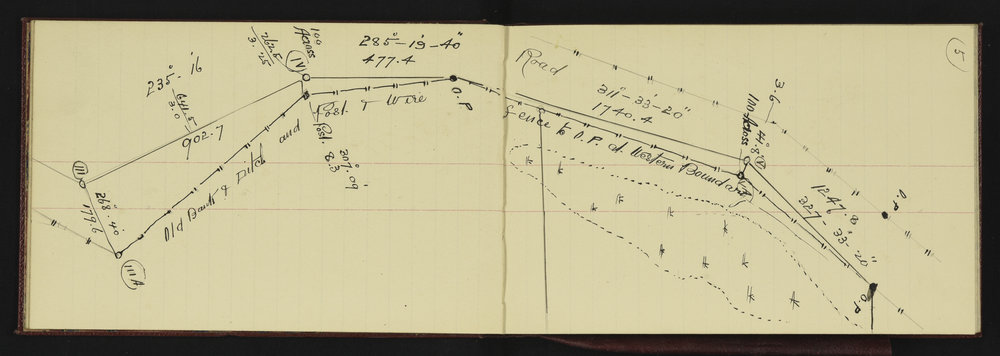 5
100
Across
262.5
3.25
IV
285°-19'-40"
477.4
O.P
235°-16
641.5
3.0
902.7
III
268°.40
179.6
III A
Old Bank & Ditch and Post & Wire
fence to O.P. at Western Boundary
Post. 8.3
307°.09'
Road
311°-33'-20"
1740.4
3.6
100 Across
41.8
V
1247.8
327-33'-20"
O.P
O.P